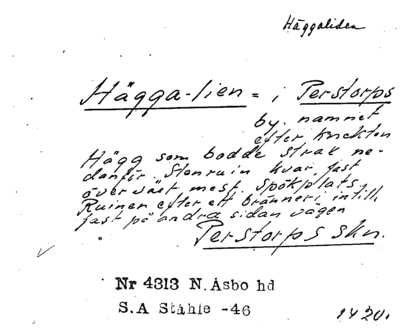 Häggaliden
Hägga-lien = i Perstorps
by. namnet
efter knekten
Hägg som bodde strax ne-
danför. Stenruin kvar, fast
övervåxt mest. Spökplats.
Ruinen efter ett bränneri intill,
fast på andra sidan vägen
Perstorps skn.
Nr 4313 N. Åsbo hd
S.A Ståhle -46
1420.